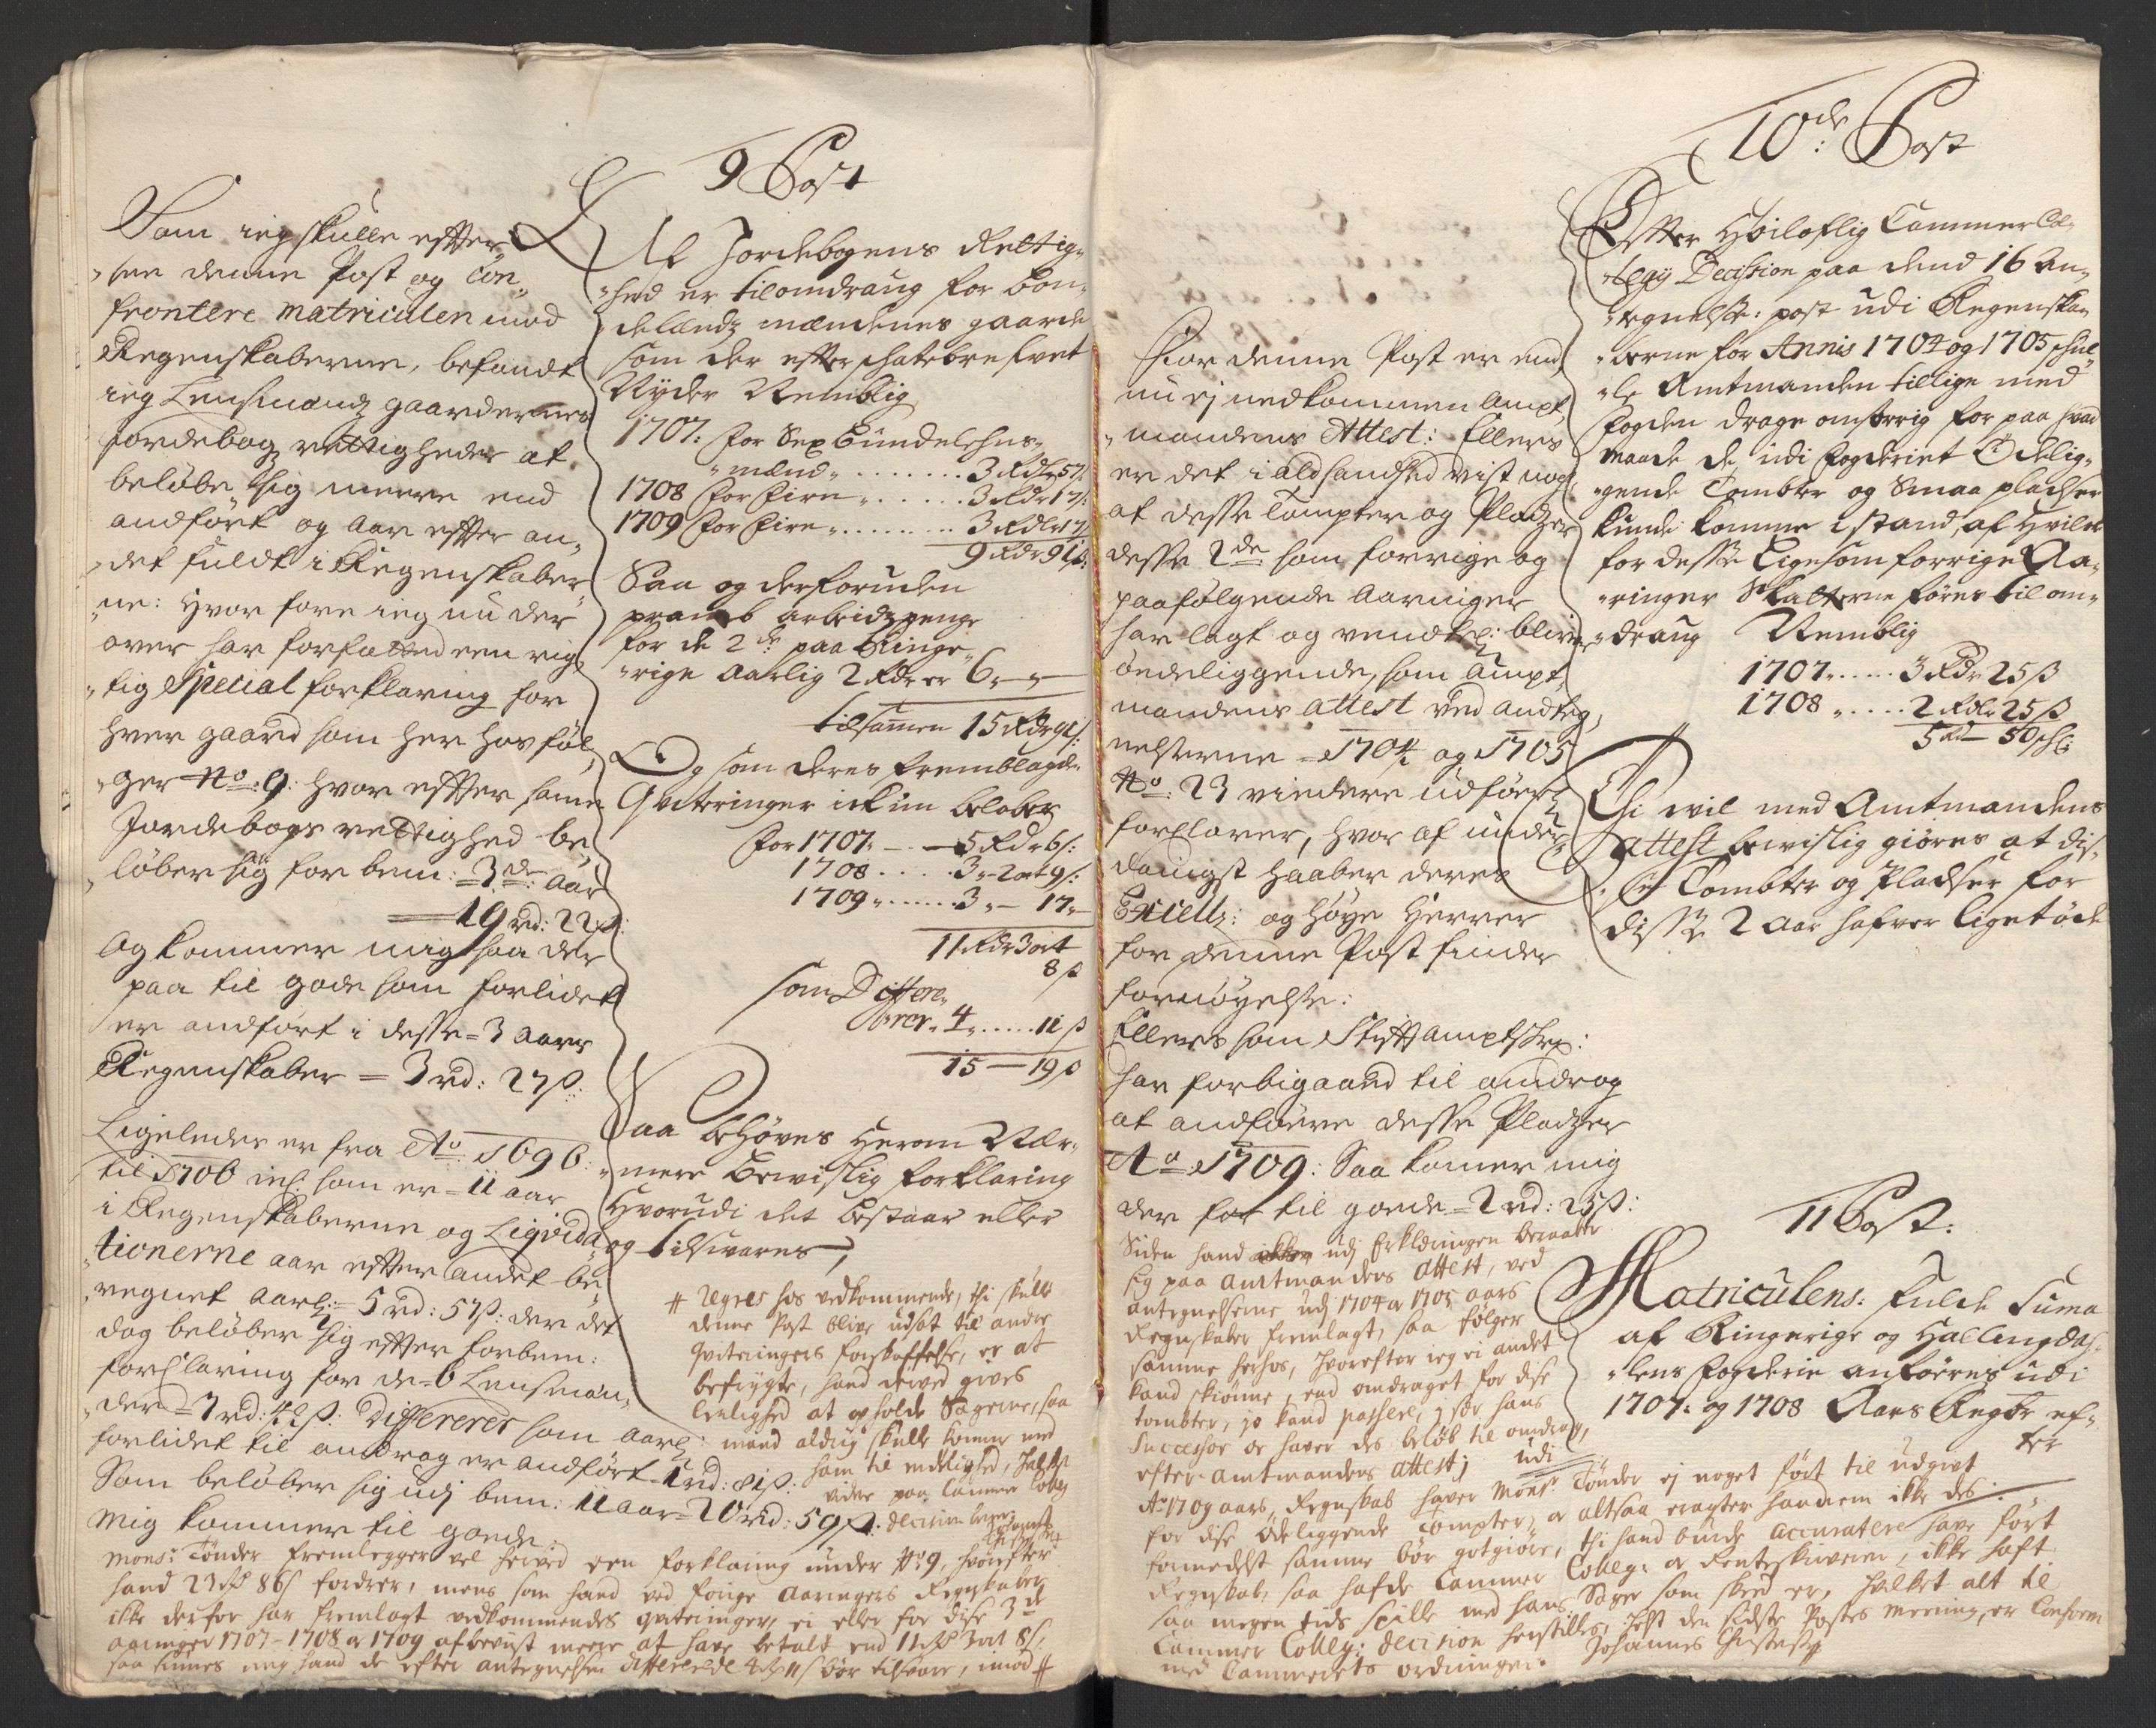 9 Post
Som ieg skulle efter
see denne Post og Con
frontere Matriculen mod
Regenskaberne, befandt
ieg Lensmands gaardernes
Jordebogs rettigheder at
beløbe sig meere end
andført og aar efter an
det fuldt i Regenskaber
ne: Hvor fore ieg nu der
over har forfatted een rig
tig Special forklaring for
hver gaard som her hos føl
ger No: 9: hvor efter same
Jordebogs rettighed be
løber sig for bem: 3de aar
19 rd: 22 ß:
og kommer mig saa der
paa til gode som forlidet
er andført i desse 3 aars
Regenskaber = 3 rd: 27 ß:
Ligeledes er fra Ao 1696:
til 1706 incl: som er 11 aar
i Regenskaberne og Liqvida
tionerne aar efter andet be
regnet aarl: 5 rd: 57 ß: der det
dog beløber sig efter forbem:
forklaring for de 6 Lensmæn
der 7 rd: 42 ß: differerer som aarl:
forlidet til omdrag er andført 1 rd: 81 ß:
Som beløber sig udj bem: 11 aar 20 rd: 59 ß:
mig kommer til goede.
Af Jordebogens Rettig
hed er til omdraug for Bon
delændz mændenes gaarde
som der efter schatebrefvet
Nyder Nemblig
1707: for Sex Bundelehns
mænd 3 Rdr 57
1708 for Fire 3 Rdr 17
1709 for Fire 3 Rdr 17
9 Rdr 91 ß:
Saa og derforuden
prambs arbeidzpenge
for de 2de paa Ringe
rige Aarlig 2 Rdr er 6
tilsamen 15 Rdr 91 ß:
Og som deres fremblagde
Qviteringer ickun beløber
for 1707 5 Rdr 6 ß:
1708 3 - 2 ort 9 ß:
1709 3 - 17
11 Rdr 3 ort
8 ß
som Differe
rer 4 11 ß
15 - 19 ß
Saa behøves herom Nær
mere bewislig forklaring
Hvorudi det bestaar eller
og tilsvares
# Uegres hos vedkommende, thi skulle
denne Post blive udsat til andre
Qviteringers forskaffelse, er at
befrygte, hand derved gives
lenlighed at opholde Sagerne, saa
mand aldrig skulle komme med
ham til endelighed, hvilket
videre paa Cammer Colleg
decision beroer
Mons: Tønder fremlegger vel herved een forklaring under No 9, hvorefter
hand 23 Rd 86 ß fordrer, mens som hand ved forige aaringers Regnskaber
ikke derfor har fremlagt vedkommendes qviteringer, ei eller for disse 3de
aaringer 1707 - 1708 a 1709 afbevist meere at have betalt end 11 Rd 3 ort 8 ß:
saa siunes mig hand de efter antegnelsen differerede 4 Rd 11 ß bør tilsvare, imod #
10de Post
For denne Post er end
nu ej nedkommen Ampt
mandens Attest: Ellers
er det i ald sandhed vist nog
at desse Tompter og Pladzer
desse 2de som forrige og
paafølgende aaringer
har lagt og vendtel: bliver
ødeliggende, som Ampt
mandens attest ved andteg
nelserne 1704 og 1705
No: 23 viedere udfører
forklarer, hvor af under
danigst haaber deres
Excell: og høye Herrer
for denne Post finder
fornøyelse:
Ellers som Stiftamptskr:
har forbigaaed til omdrag
at andføere desse Pladzer
Ao 1709: Saa komer mig
der for til goede 2 rd: 25 ß:
Siden hand udj Erklæringen beraaber
sig paa amtmandens attest, ved
antegnelserne udj 1704 a 1705 aars
Regnskaber fremlagt, saa følger
samme herhos, hvorefter ieg ei andet
kand skiønne, end omdraget for dise
tombter, jo kand passere, j sær hans
Successor de haver des beløb til omdrag,
efter amtmandens attest; udi
Ao 1709 aars Regnskab haver Mons: Tønder ej noget ført til udgivt
for dise ødeliggende tompter, a altsaa eragter handem ikke des
formedelst samme bør gotgiøre, thi hand burde accuratere have ført
Regnskab, saa hafde Cammer Colleg: a Renteskriveren, ikke haft
saa megen tids spille med hans Sager som skeed er, hvilket alt til
Cammer Colleg: decision henstilles, helst den sidste Postes meening, er Conform
med Cammerets ordninger.
Johannes Christensen
Efter Høiloflig Cammer Col
legij Decission paa dend 16 An
tegnelse: post udi Regenska
berne for Annis 1704 og 1705 skul
le Amtmanden tillige med
Fogden drage omsorrig for paa hvad
Maade de udi Fogderiet Ødelig
gende Tombter og Smaa pladser
kunde komme i stand, af hvilke
for desse Ligesom forrige Aa
ringer Skatterne føres til om
draug Nemblig
1707 3 Rdr 25 ß
1708 2 Rdr 25 ß
5 Rd 50 ß:
Thi vil med Amtmandens
attest bewislig giøres at dis
se Tombter og Pladser for
disse 2 Aar hafver ligget øde
11 Post:
Matriculens: fulde Suma
af Ringerige og Hallingda
lens Fogderie anføeres udi
1707: og 1708 Aars Regskr ef
ter